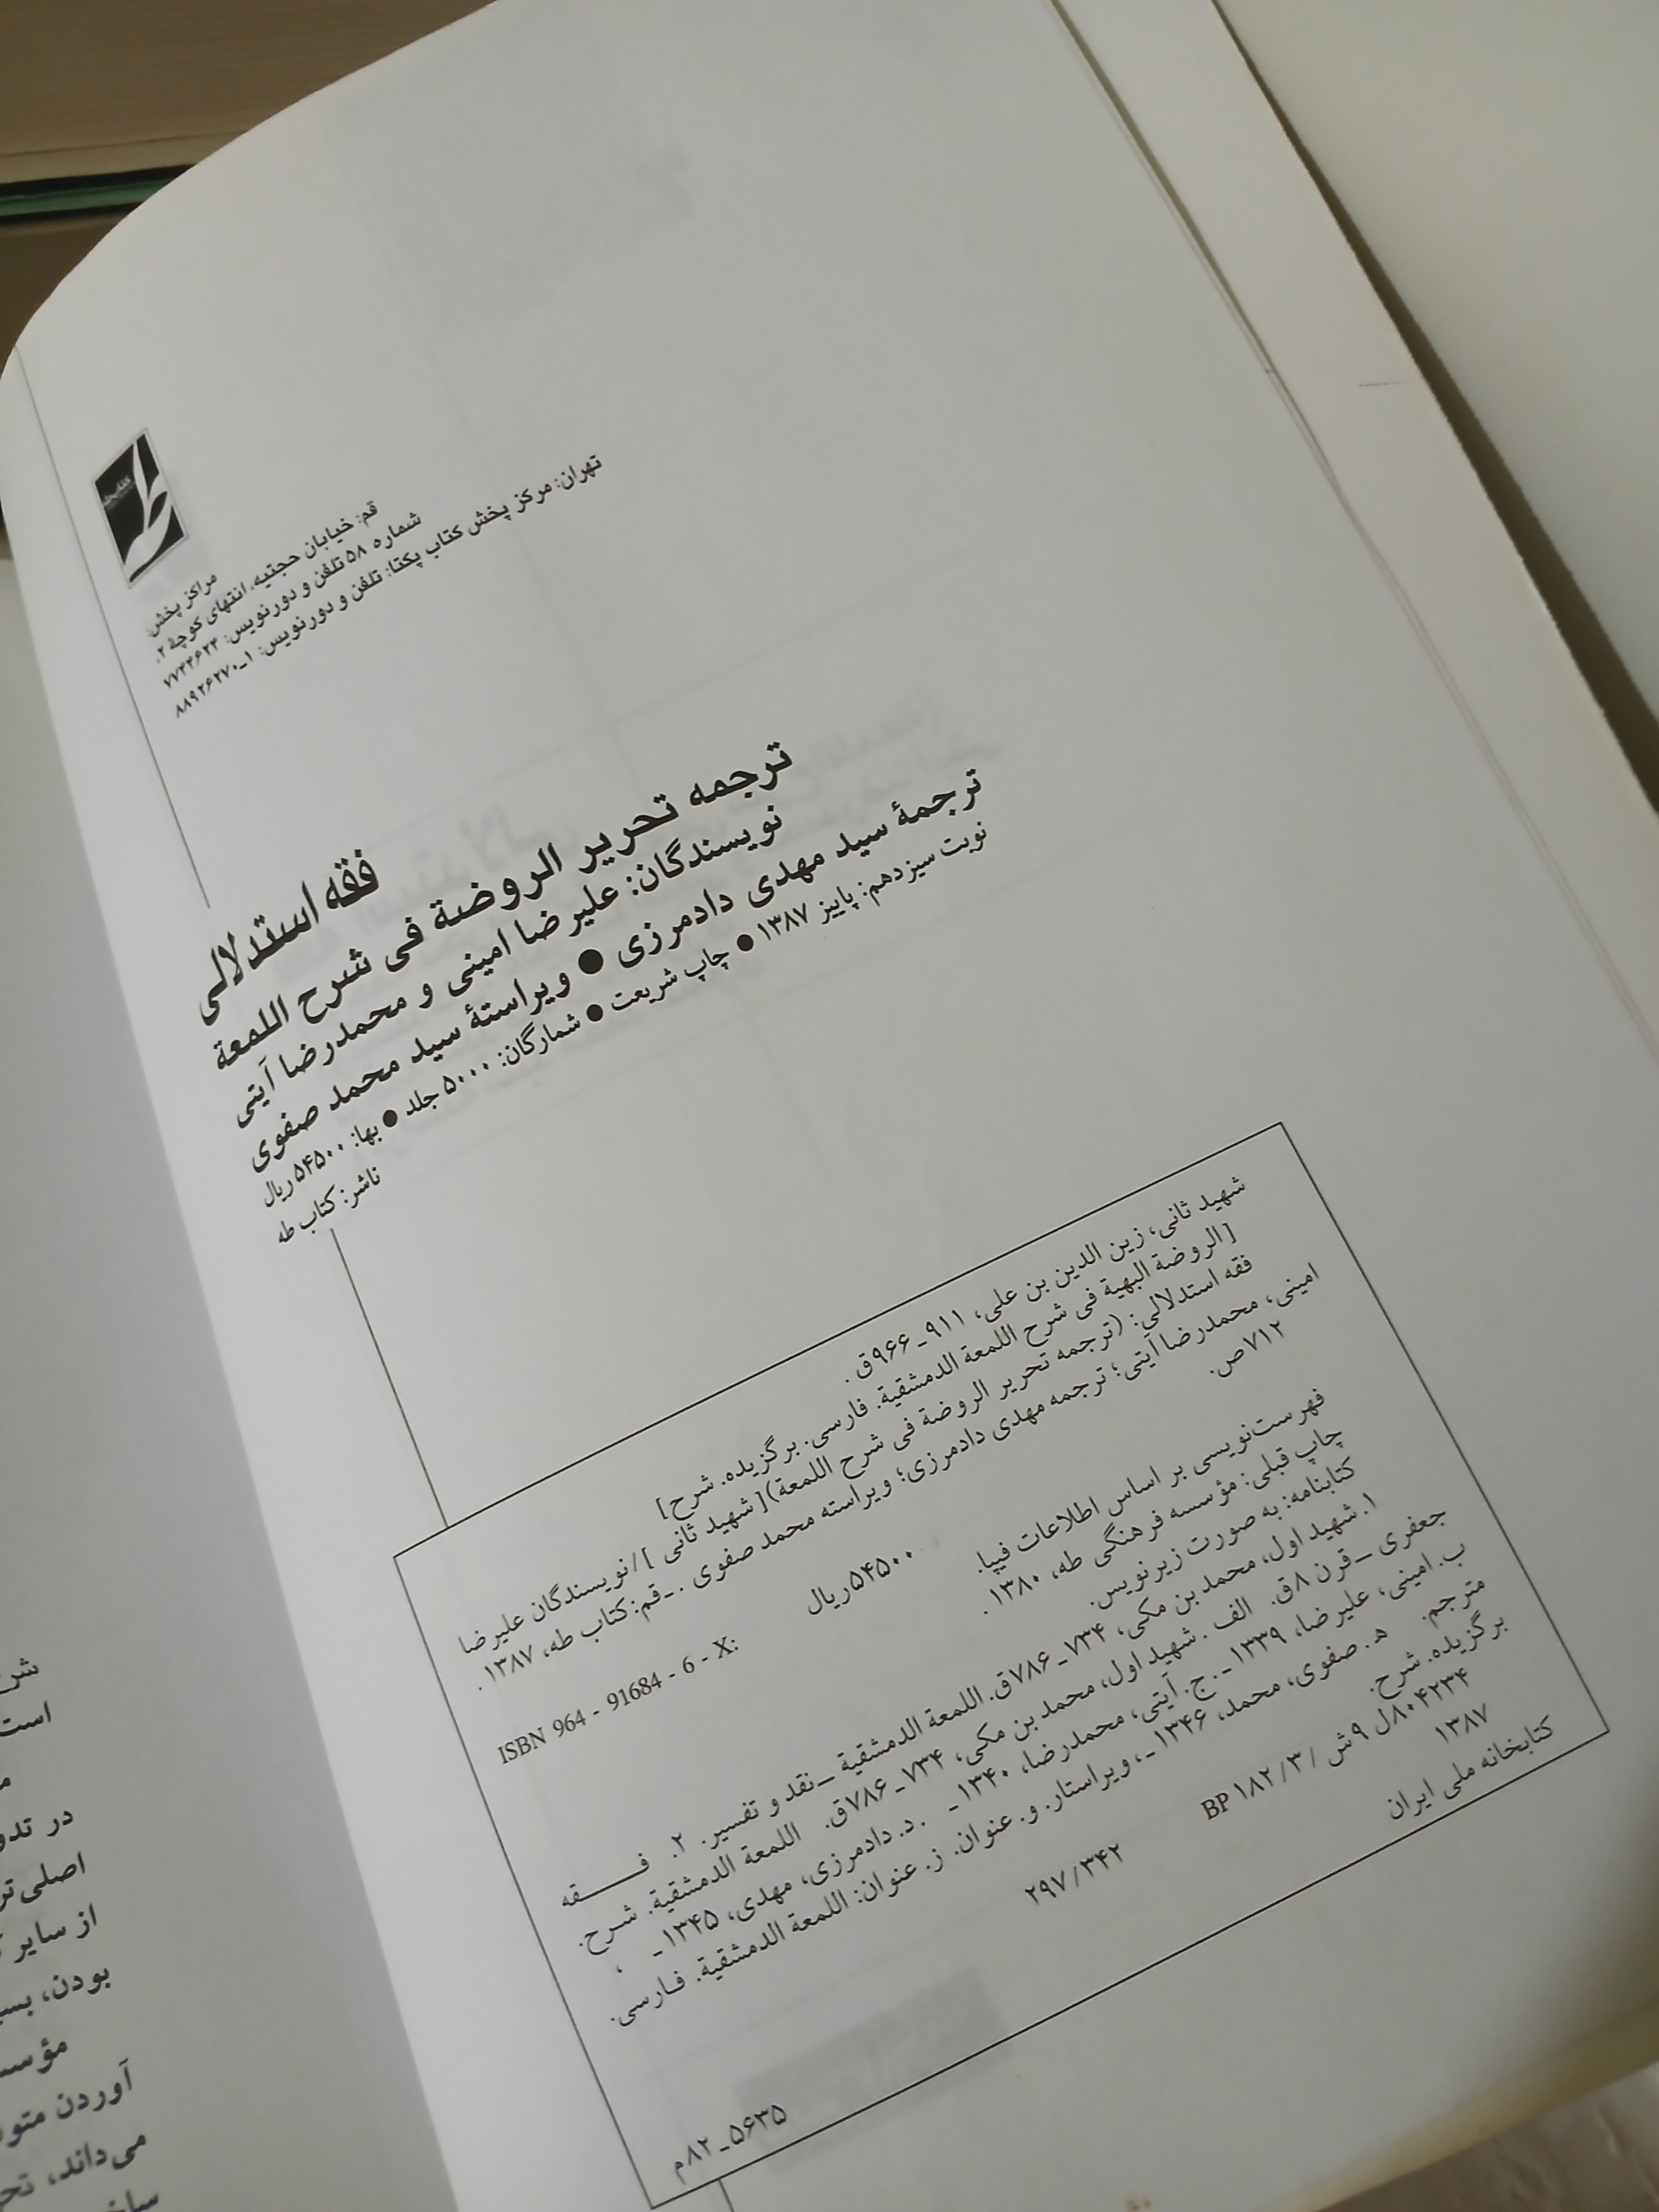 مراکز پخش:
قم: خیابان حجتیه، انتهای کوچهٔ ۲،
شماره ۵۸ تلفن و دورنویس: ۷۷۴۴۶۲۴
تهران: مرکز پخش کتاب یکتا: تلفن و دورنویس: ۱-۸۸۹۲۶۲۷۰
فقه استدلالی
ترجمه تحریر الروضة فی شرح اللمعة
نویسندگان: علیرضا امینی و محمدرضا آیتی
ترجمهٔ سید مهدی دادمرزی ● ویراستهٔ سید محمد صفوی
نوبت سیزدهم: پاییز ۱۳۸۷ ● چاپ شریعت ● شمارگان: ۵۰۰۰ جلد ● بها: ۵۴۵۰۰ ریال
ناشر: کتاب طه
شهید ثانی، زین الدین بن علی، ۹۱۱ـ ۹۶۶ق.
[الروضة البهیة فی شرح اللمعة الدمشقیة. فارسی. برگزیده. شرح]
فقه استدلالی: (ترجمه تحریر الروضة فی شرح اللمعة) [شهید ثانی ]/ نویسندگان علیرضا
امینی، محمدرضا آیتی؛ ترجمه مهدی دادمرزی؛ ویراسته محمد صفوی . ـ قم: کتاب طه، ۱۳۸۷ .
۷۱۲ص.
ISBN 964 - 91684 - 6 - X: ۵۴۵۰۰ ریال
فهرست‌نویسی بر اساس اطلاعات فیپا.
چاپ قبلی: مؤسسه فرهنگی طه، ۱۳۸۰ .
کتابنامه: به صورت زیرنویس.
۱. شهید اول، محمد بن مکی، ۷۳۴ـ ۷۸۶ق. اللمعة الدمشقیة ـ نقد و تفسیر. ۲. فقه
جعفری ـ قرن ۸ق. الف . شهید اول، محمد بن مکی، ۷۳۴ـ ۷۸۶ق. اللمعة الدمشقیة. شرح.
ب. امینی، علیرضا، ۱۳۳۹ـ . ج. آیتی، محمدرضا، ۱۳۴۰ـ . د. دادمرزی، مهدی، ۱۳۴۵ـ ،
مترجم. ه . صفوی، محمد، ۱۳۴۶ـ، ویراستار. و. عنوان. ز. عنوان: اللمعة الدمشقیة. فارسی.
برگزیده. شرح.
۲۹۷/۳۴۲ BP ۱۸۲/۳/ ۸۰۴۲۳۴ل ۹ش
۱۳۸۷
کتابخانه ملی ایران
۵۶۳۵ـ ۸۲م
است
در تدو
از سایر
بودن، بسی
آوردن متو
می‌داند، تح